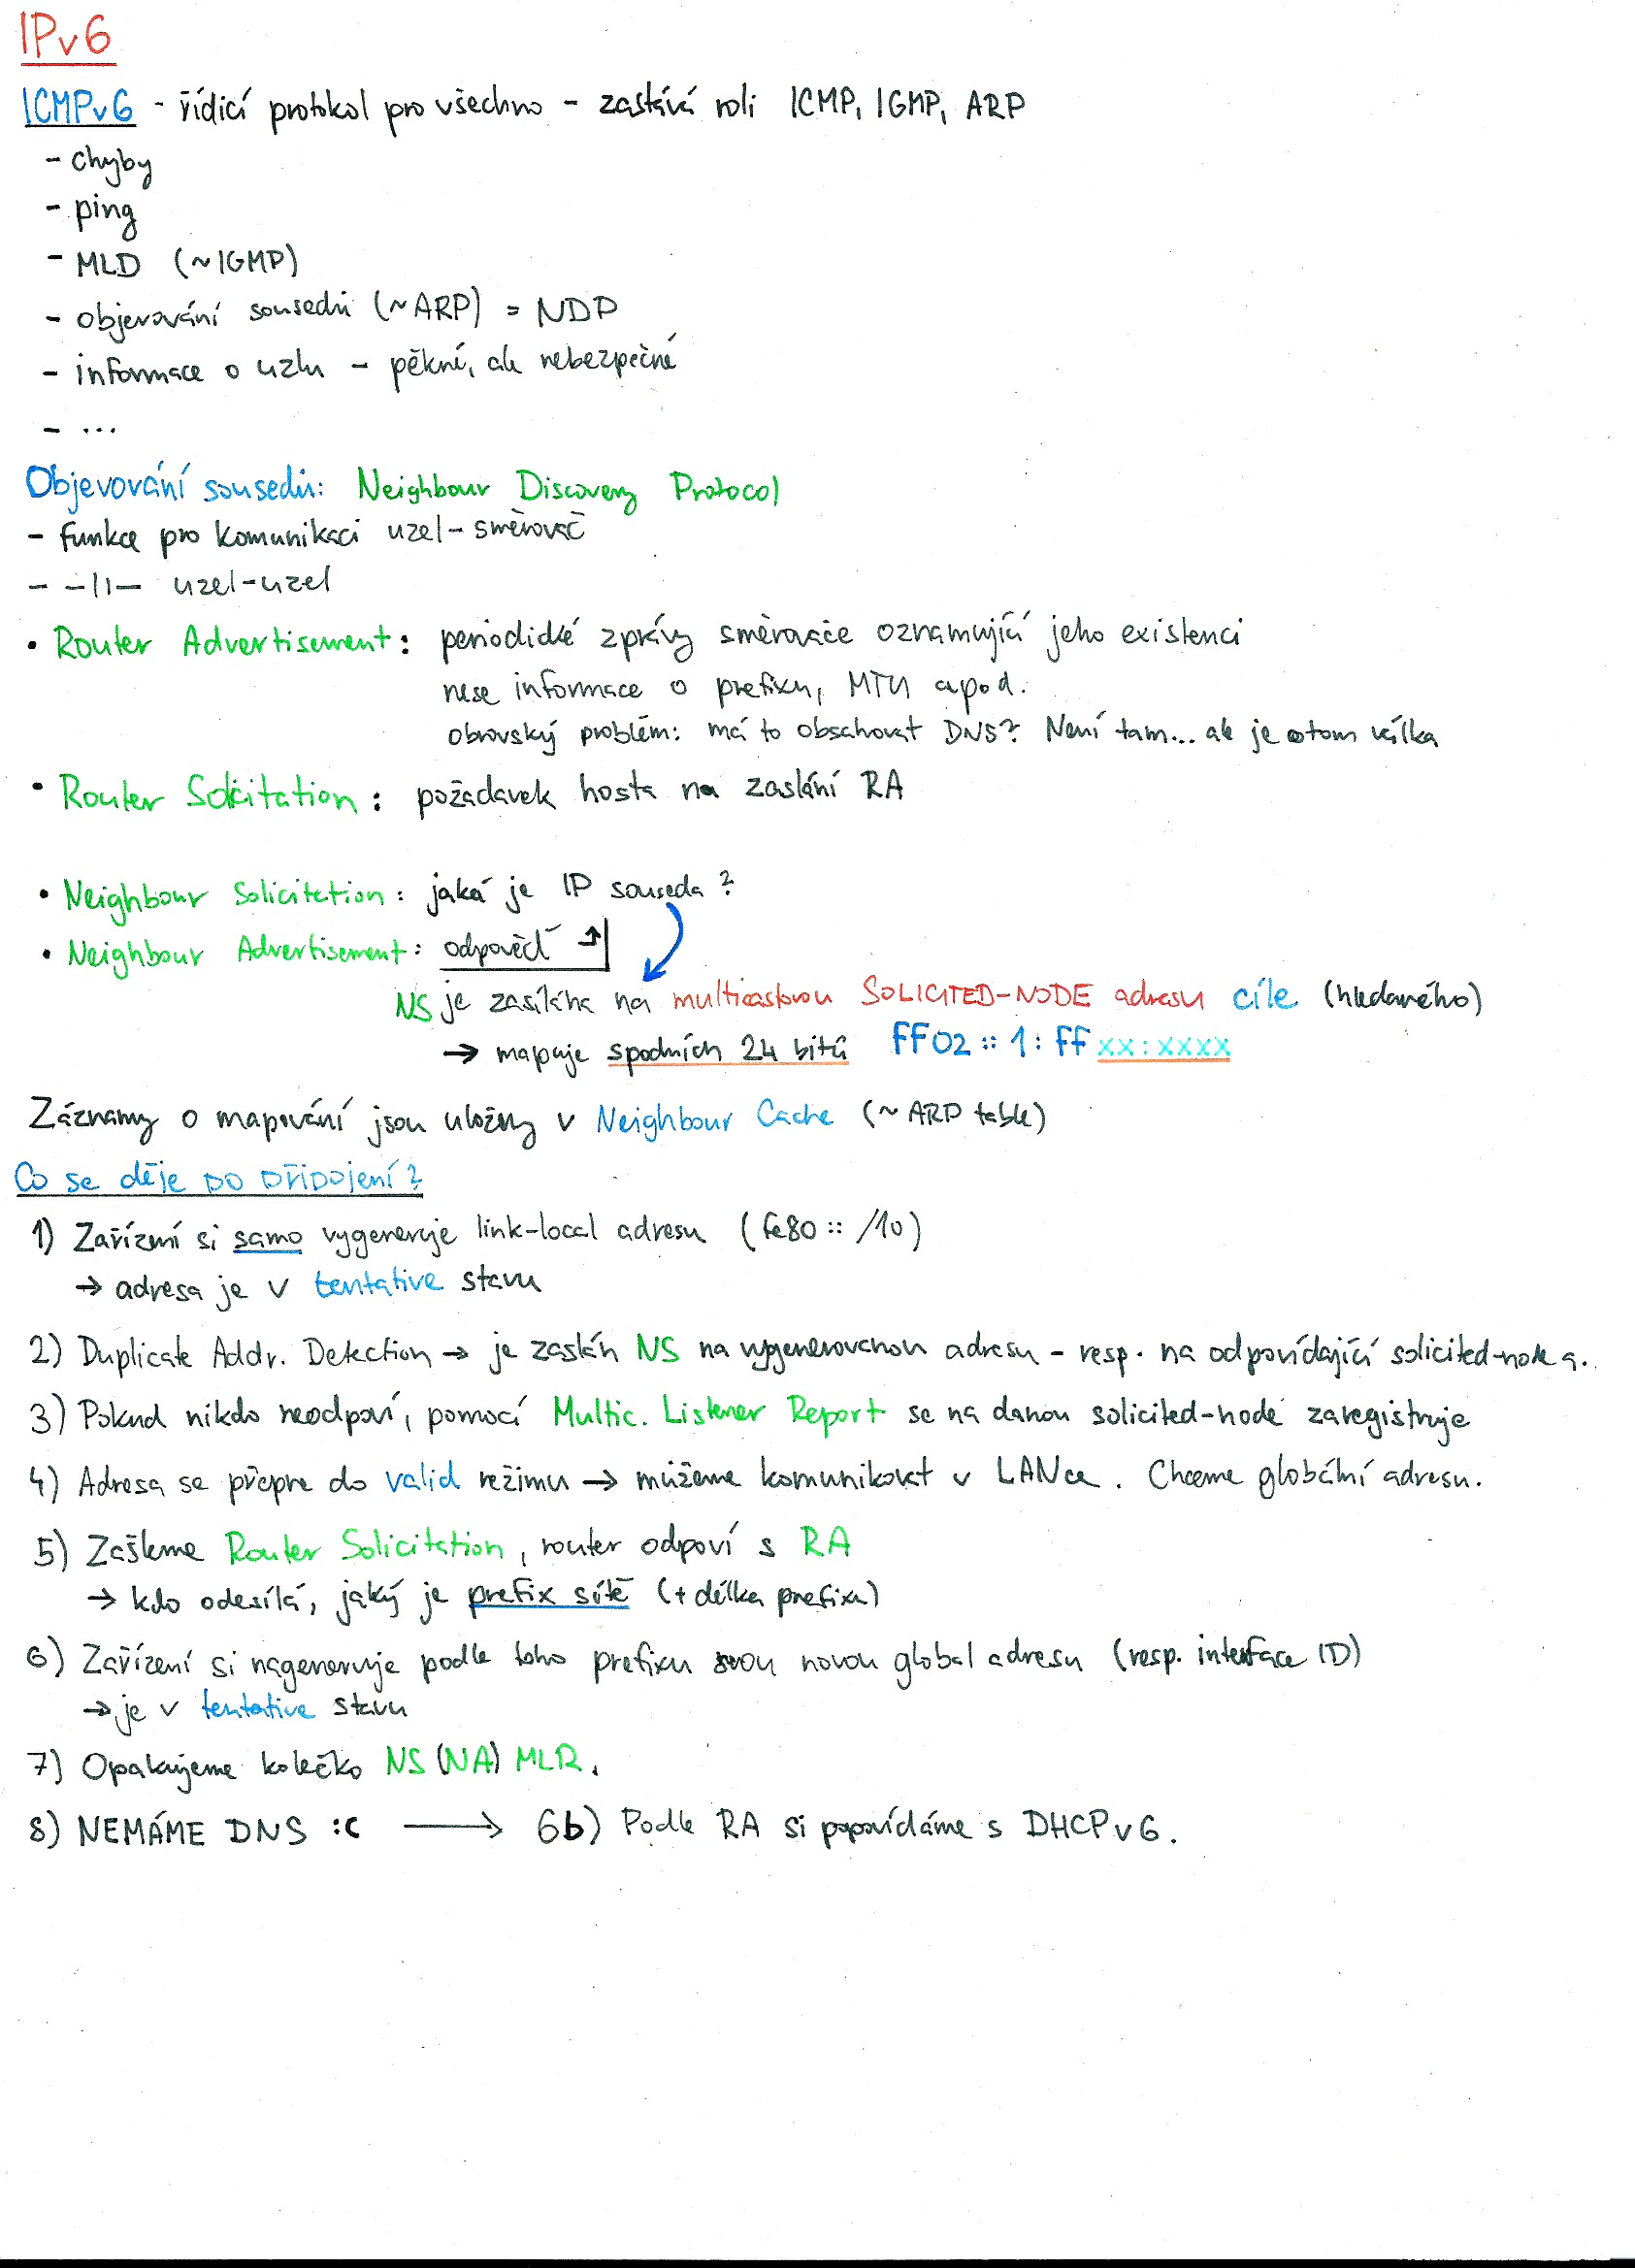 IPv6
ICMPv6 - řídicí protokol pro všechno - zastává roli ICMP, IGMP, ARP
- chyby
- ping
- MLD (~IGMP)
- objevování sousedů (~ARP) = NDP
- informace o uzlu - pěkné, ale nebezpečné
- ...
Objevování sousedů: Neighbour Discovery Protocol
- funkce pro komunikaci uzel-směrovač
- -||- uzel-uzel
• Router Advertisement: periodické zprávy směrovače oznamující jeho existenci
nese informace o prefixu, MTU apod.
obrovský problém: má to obsahovat DNS? Není tam... ale je o tom válka
• Router Solicitation: požadavek hosta na zaslání RA
• Neighbour Solicitation: jaká je IP souseda?
• Neighbour Advertisement: odpověď
NS je zasílána na multicastovou SOLICITED-NODE adresu cíle (hledaného)
→ mapuje spodních 24 bitů FF02::1:FFxx:xxxx
Záznamy o mapování jsou uloženy v Neighbour Cache (~ARP table)
Co se děje po připojení?
1) Zařízení si samo vygeneruje link-local adresu (fe80::/10)
→ adresa je v tentative stavu
2) Duplicate Addr. Detection → je zaslán NS na vygenerovanou adresu - resp. na odpovídající solicited-node a.
3) Pokud nikdo neodpoví, pomocí Multic. Listener Report se na danou solicited-node zaregistruje
4) Adresa se přepne do valid režimu → můžeme komunikovat v LANce. Chceme globální adresu.
5) Zašleme Router Solicitation, router odpoví s RA
→ kdo odesílá, jaký je prefix sítě (+ délka prefixu)
6) Zařízení si nageneruje podle toho prefixu svou novou global adresu (resp. interface ID)
→ je v tentative stavu
7) Opakujeme kolečko NS (NA) MLR.
8) NEMÁME DNS :C → 6b) Podle RA si popovídáme s DHCPv6.